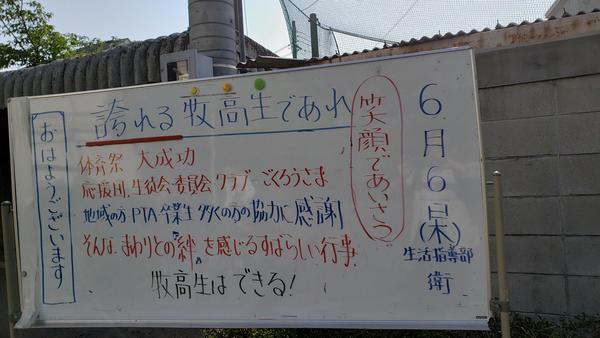 6月6日(木)
生活指導部
衛
笑顔であいさつ
誇れる牧高生であれ
体育祭 大成功
応援団、生徒会、委員会、クラブ ごくろうさま
地域の方 PTA 卒業生 多くの方の協力に感謝
そんな まわりとの"絆"を感じるすばらしい行事
牧高生はできる!
おはようございます